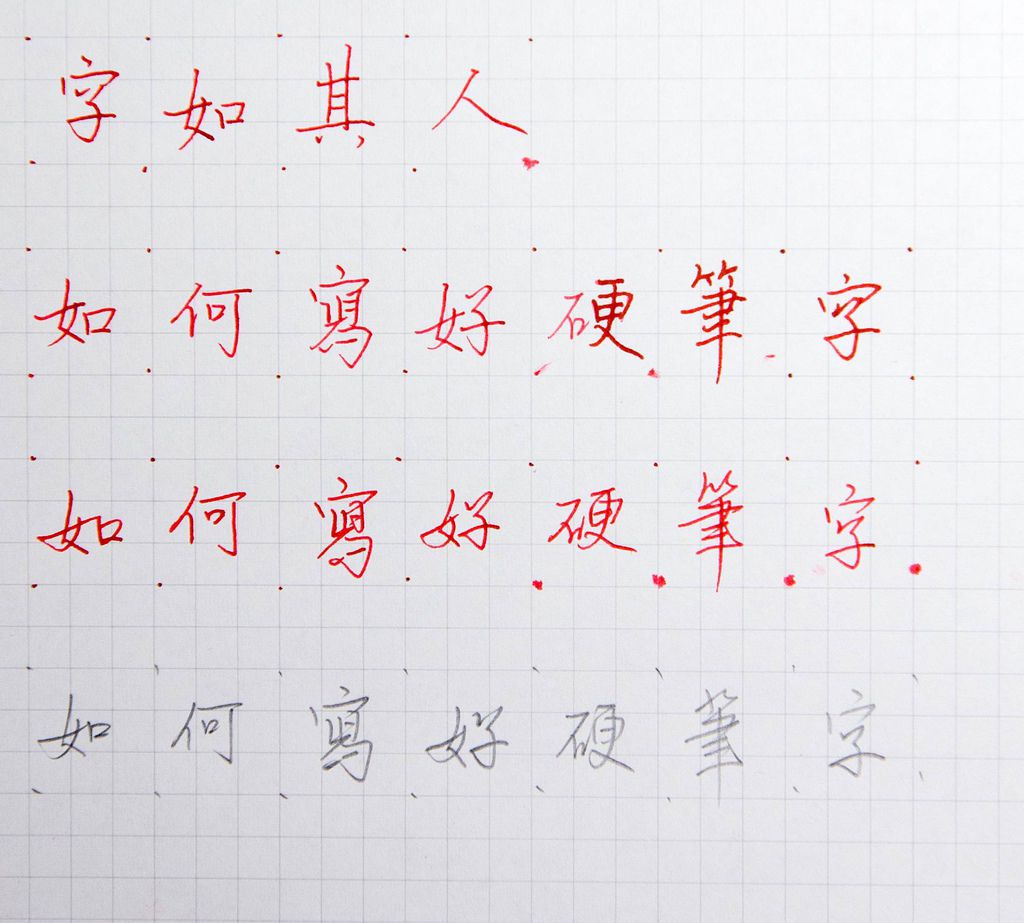 字如其人
如何寫好硬筆字
如何寫好硬筆字
如何寫好硬筆字